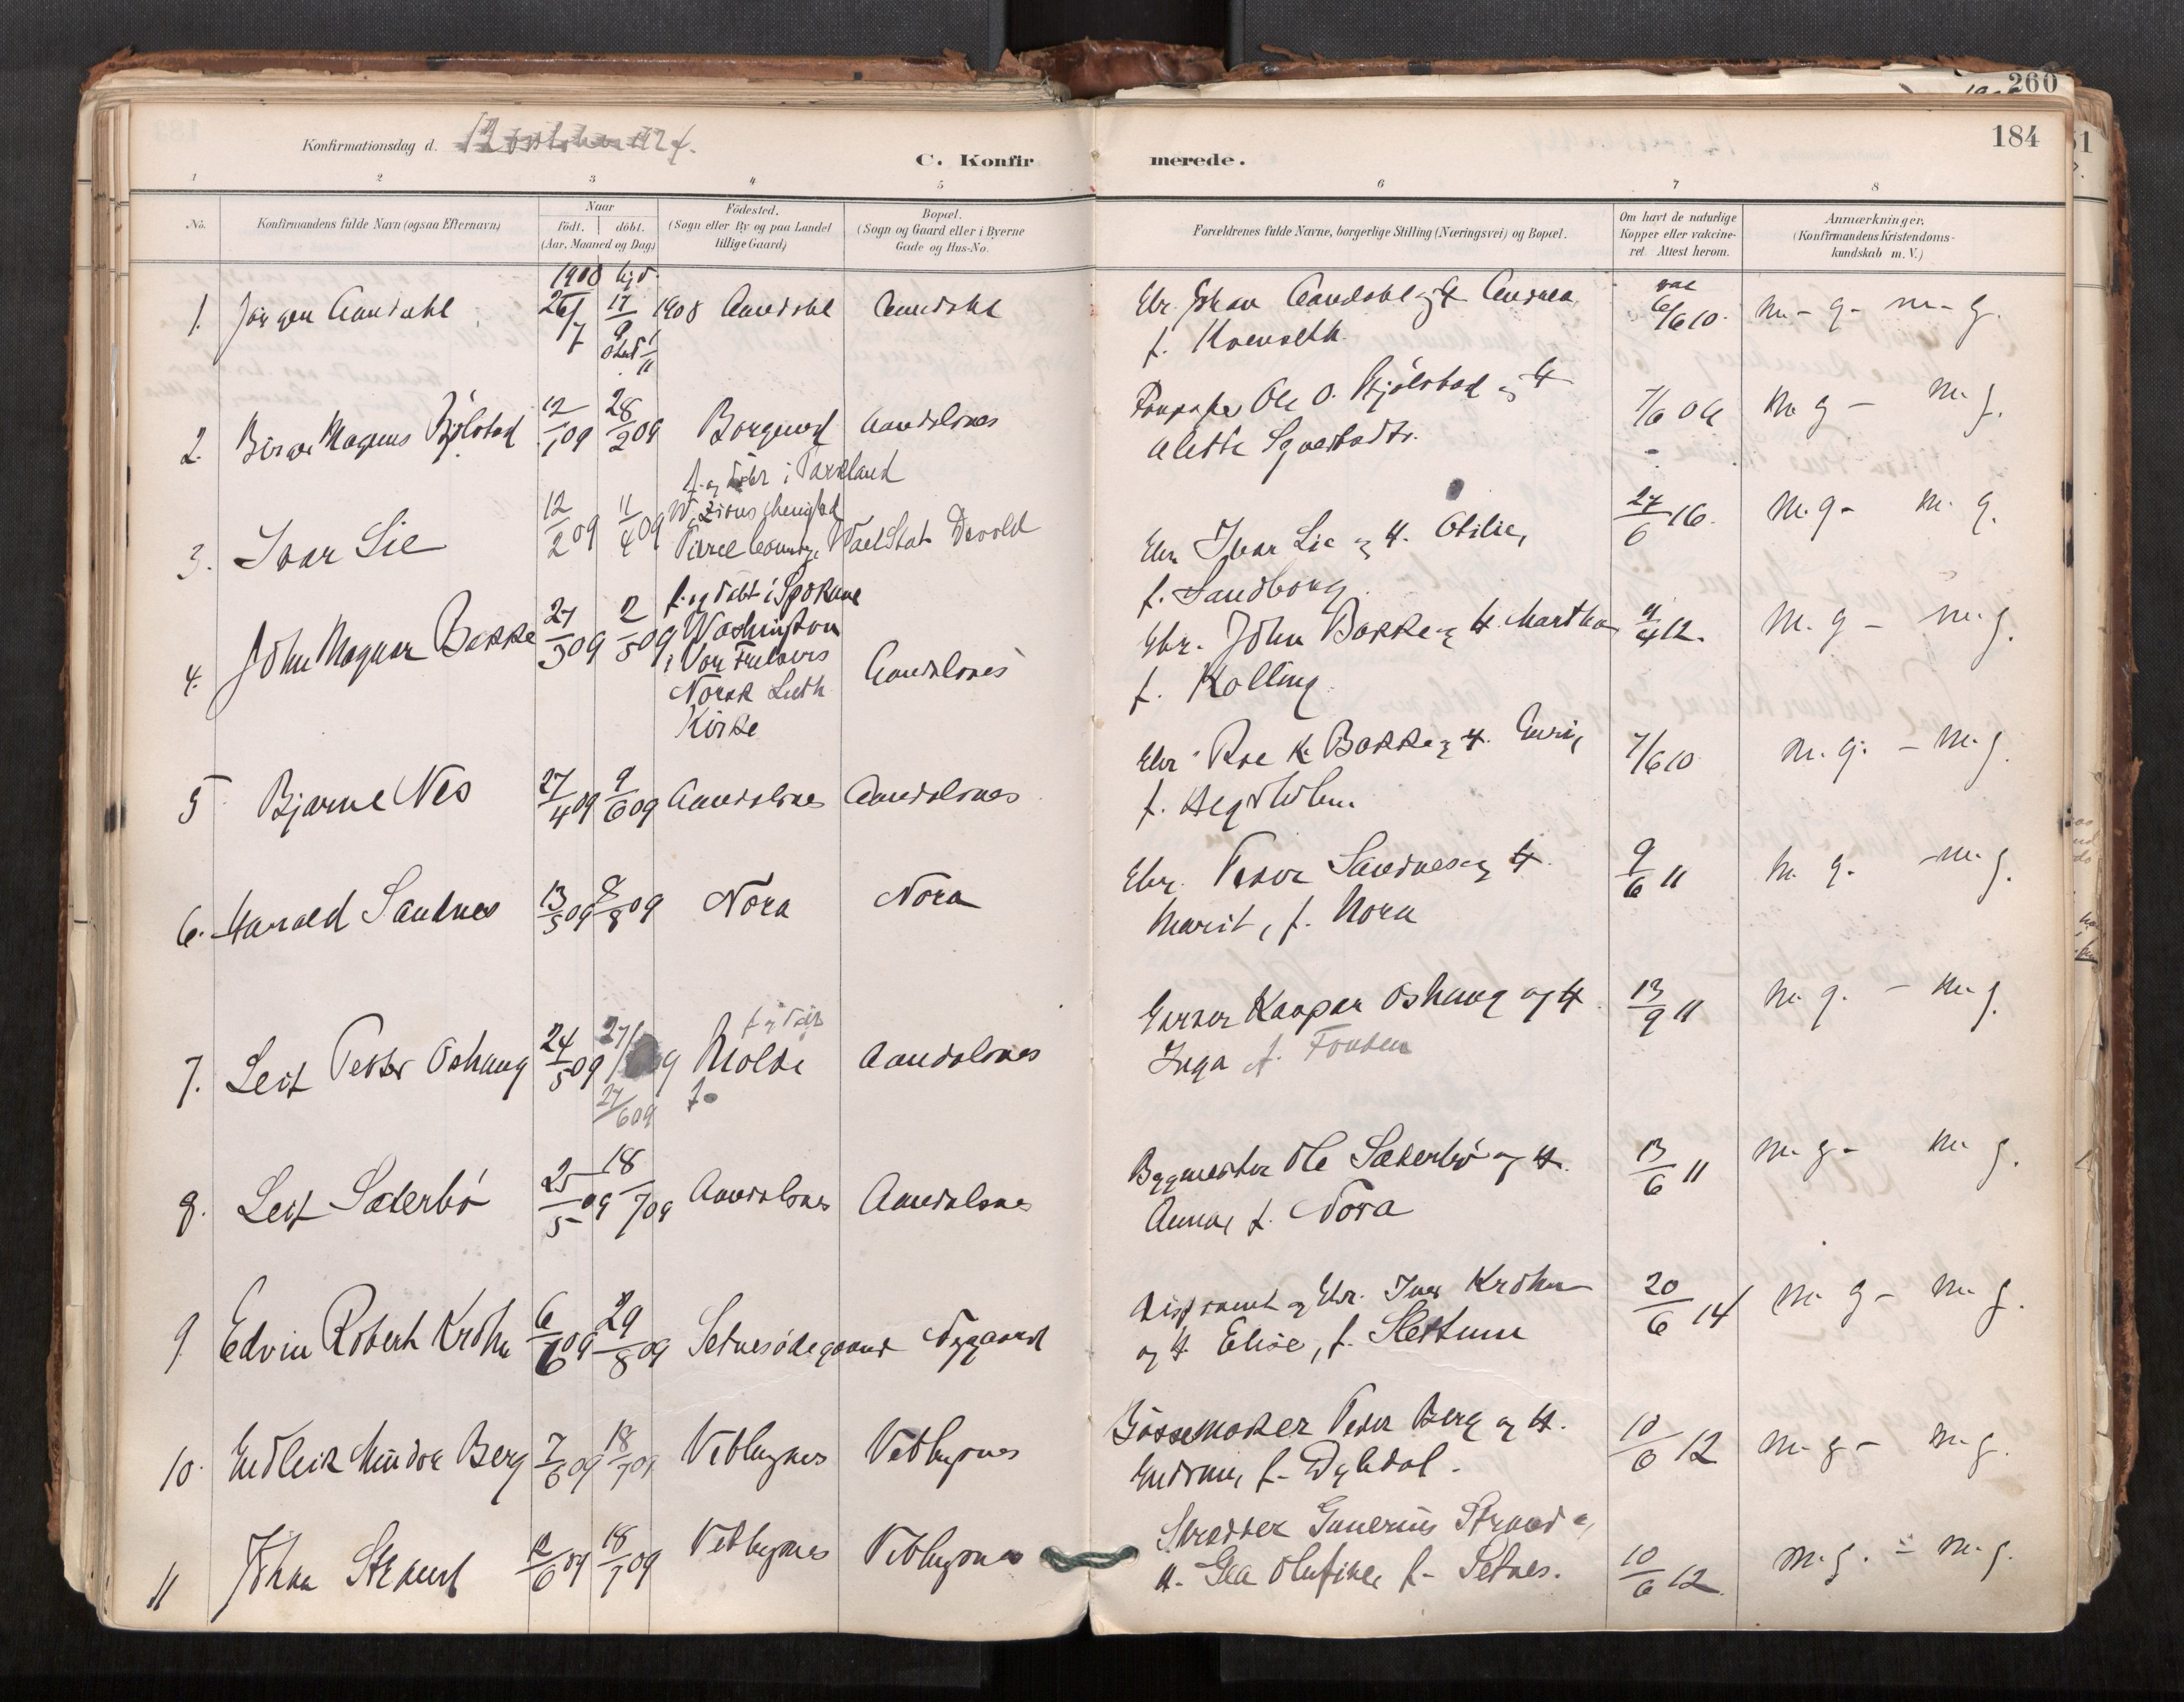 260
184
Konfirmationsdag d.
C. Konfirmerede.
1 2 3 4 5 6 7 8
No.
Konfirmandens fulde Navn (ogsaa Efternavn)
Naar
født. døbt.
(Aar, Maaned og Dag)
Fødested.
(Sogn eller By og paa Landet
tillige Gaard)
Bopæl.
(Sogn og Gaard eller i Byerne
Gade og Hus-No.
Forældrenes fulde Navne, borgerlige Stilling (Næringsvei) og Bopæl.
Om havt de naturlige
Kopper eller vakcine-
ret. Attest herom.
Anmærkninger.
(Konfirmandens Kristendoms-
kundskab m. V.)
1908
1. Jörgen Aandahl 26/7 17/9 1908 Aandahl Aandahl Ebr. Johan Aandahl og H. Andrea vac 6/6 10. m-g- m-g.
f.
2. Birger Magnus 12/1 09 28/2 09 Borgund Aandalsnes Ole O. og H 7/6 m g - m g.
Alette
f. og døbt i Parkland
3. Ivar Lie 12/2 09 11/4 09 Zions menighed
Pierce County, Wash Stat Devold Ebr. Ivar Lie og H. Otilie, 27/6 16. m.g - m. g.
f. Sandborg
4. John Magnar Bakke 27/3 09 2/5 09 f. og døbt i Spokane
Washington
i Vor Frelsers
Norsk Luth
Kirke
Aandalsnes Ebr. John Bakke og H. Martha 9/4 12. m. g - m. g.
f. Kolling
5 Bjarne Nes 27/4 09 9/6 09 Aandalsnes Aandalsnes Ebr. Roe K. Bakke og H. Guri, 7/6 10 m. g. - m. g.
f.
6. Harald Sandnes 13/5 09 8/8 09 Nora Nora Ebr. Peder Sandnes og H. 9/6 11 m. g. - m. g.
Marit, f. Nora
7. Leif Petter Oshaug 24/5 09 27/6 09 Molde Aandalsnes Garver Kaspar Oshaug og H. 13/9 11 m. g. - m. g.
Inga f. Fonden
8. Leif Sæterbö 25/5 09 18/7 09 Aandalsnes Aandalsnes Bygmester Ole Sæterbö og H. 13/6 11 m. g - m. g.
Anna, f. Nora
9 Edvin Robert Krohn 6/6 09 29/8 09 Setnesødegaard Nygaard og Ebr. Iver Krohn 20/6 14 m. g - m. g.
og H Elise, f. Slettum
10. Endreik Mindor Berg 7/6 09 18/7 09 Veblugnes Veblugnes Bössemaker Peder Berg og H. 10/6 12 m. g - m. g.
f.
11 Johan Strand 12/6 09 18/7 09 Veblugnes Veblugnes Skrædder Gunerius Strand og
H. Gea Olufine, f. Setnes. 10/6 12. m. g. - m. g.